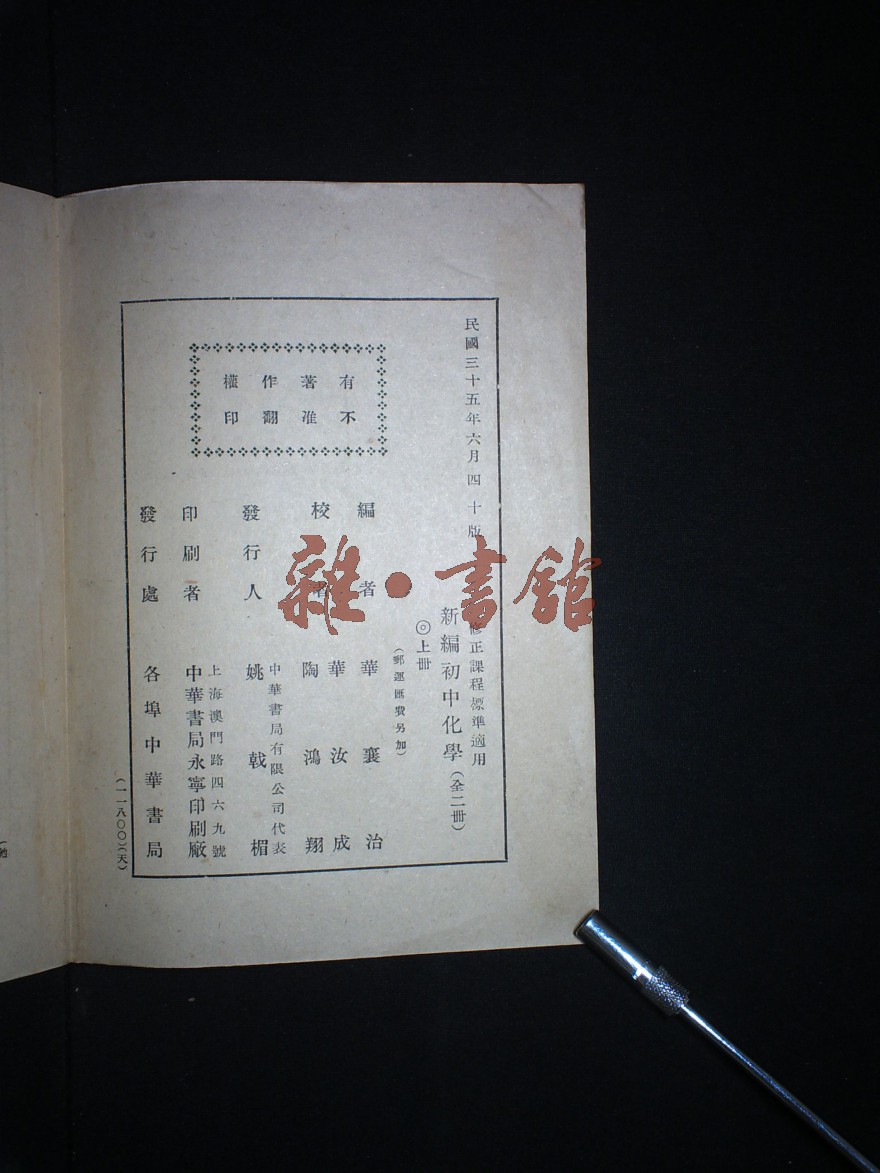 民國三十五年六月四十版
修正課程標準適用
新編初中化學(全二冊)
◎上冊
(郵運匯費另加)
有著作權
不准翻印
編者 華襄治
校者 華汝成
陶鴻翔
發行人 中華書局有限公司代表
姚戟楣
印刷者 上海澳門路四六九號
中華書局永寧印刷廠
發行處 各埠中華書局
(一一八〇〇)(天)
雜·書館